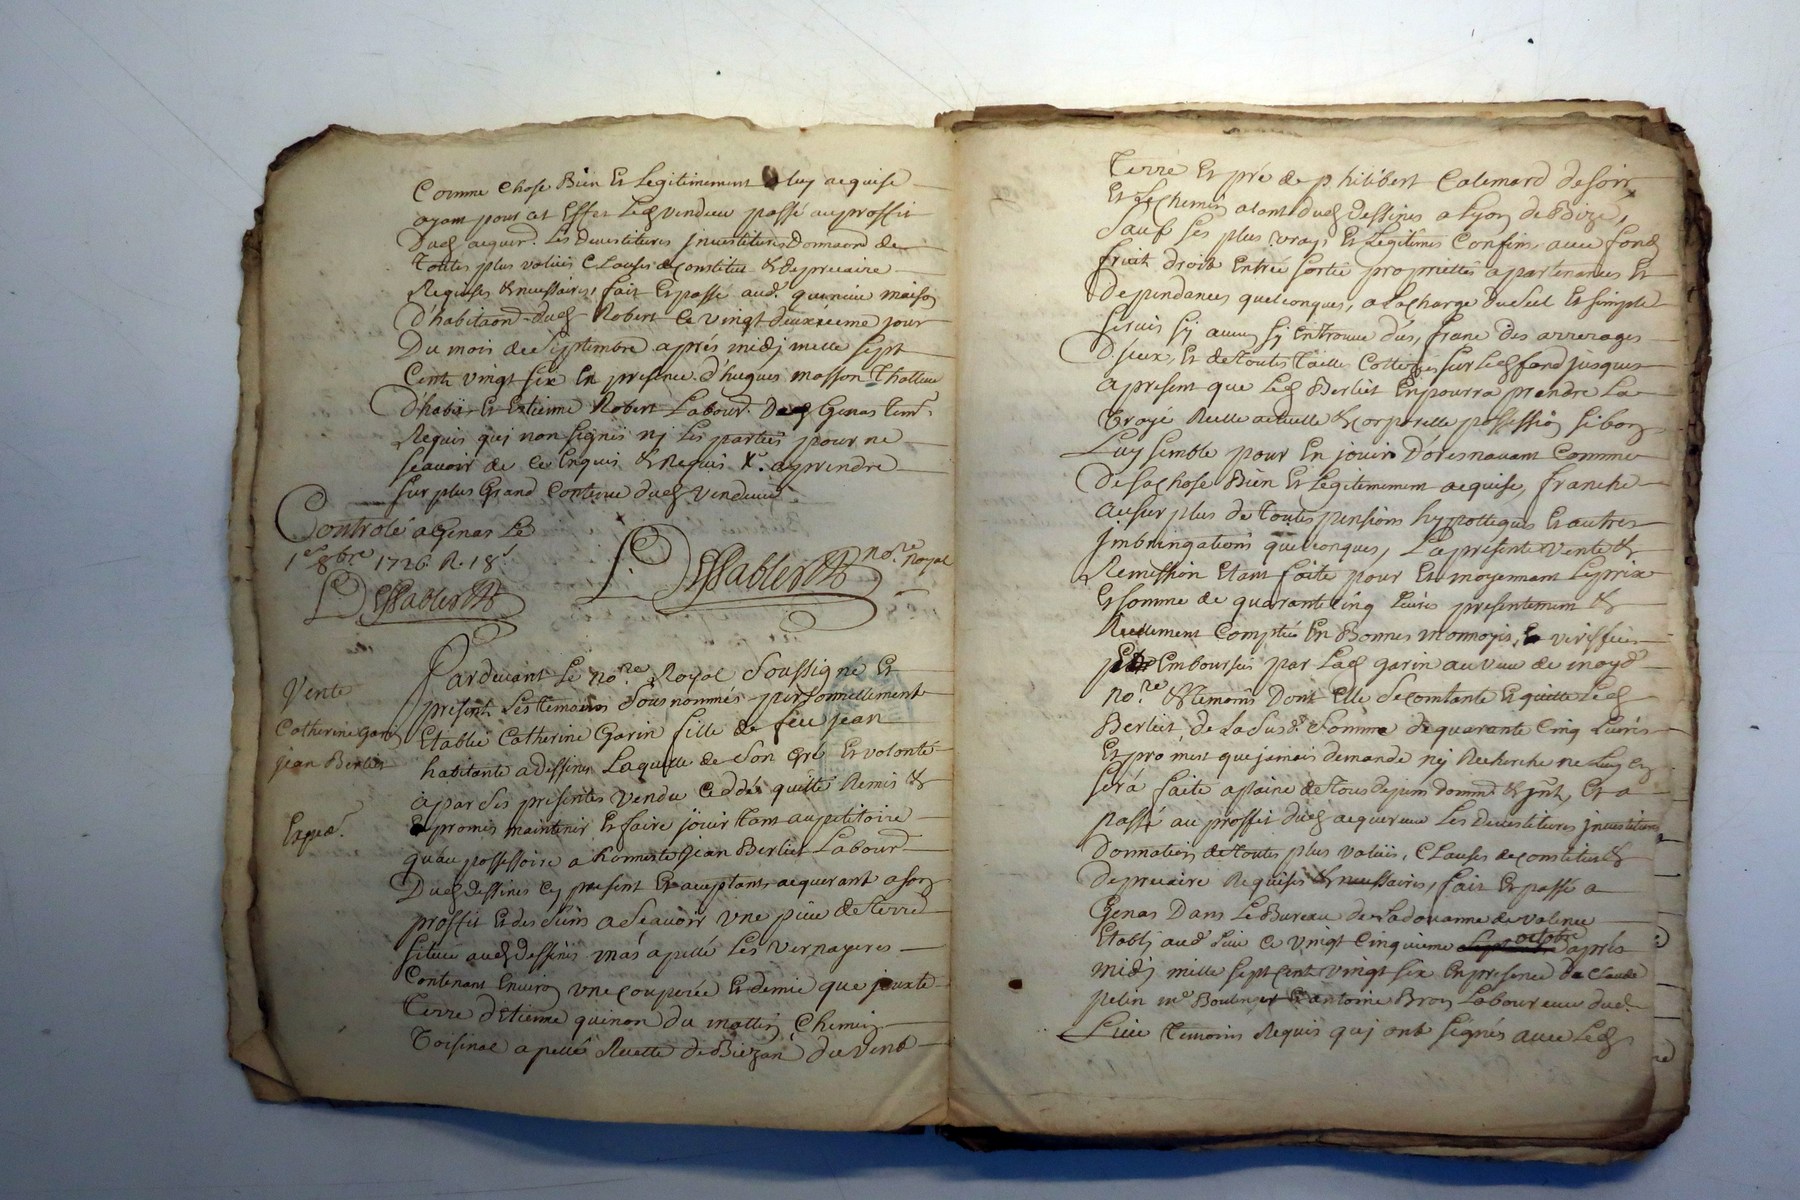 Comme chose Bien Et Legitimement a luy acquise
ayant pour cet Effet Led vendeur passé au proffit
Dud acquer. Les Devestitures jnvestitures Donnaon de
Toutes plus values Clauses de constitut & de precaire
Requises & necessaires, fait Et passé aud. genas maison
D'habitaon dud Robert Ce vingt deuxieme jour
Du mois de Septembre aprés midj mille Sept
Cents vingt six En presence d'hugues masson
d'habit Et Estienne Robert Labour. Dud Genas tem.
Requis quj non signés nj Les parties pour ne
sçavoir de ce Enquis & Requis aprendre
sur plus Grand Contenu dud vendeur
Controlé a Genas Le
1er 8bre 1726. R. 18s
Dessablet
Dessablet no.re Royal
Vente
Catherine Garin
jean Berliet
Exped.
Pardevant Le no.re Royal Soussigné Et
presents Les temoins Sousnommés personnellement
Etablie Catherine Garin fille de feu jean
habitante a dessines Laquelle de Son Gré Et volonté
a par Ses presentes vendu Ceddé quitté Remis &
promis maintenir Et faire jouir tant au petitoire
qu'au possessoire a honneste jean Berliet Labour
Dud dessines Cy present Et acceptant acquerant a son
proffit Et des Siens a Sçavoir Une piece de terre
située aud dessines mas apellé Les vernayeres
Contenant Environ une couperée Et demie que jouxte
Terre d'Etienne quinon du matin Chemin
Voisinal apellé Ruette de Biezan du vent
Terre Et pré de philibert Calemard de soir
Et Le Chemin alant dud dessines a Lyon de Bize,
Sauf Ses plus vrays Et Legitimes Confins avec fond
fruit droit Entrée sortie proprietés apartenances Et
Dependances quelconques, a La charge du Seul Et simple
servis sy aucun sy Entrouve dûs, franc des arrerages
D'jceux, Et de toutes Taille Cottes sur Led fond jusques
a present que Led Berliet En pourra prendre La
vraye Reelle actuelle & corporelle possession si bon
Luy semble pour En jouir D'oresnavant Comme
De sa chose Bien Et Legitimement acquise, franche
au surplus de toutes pensions hypotteques Et autres
jmbringations quelconques, La presente vente &
Remission Etant faite pour Et moyennant Le prix
Et somme de quarante cinq Livres presentement &
Reellement Comptée En Bonnes monnoyes, verisfiées
Embourseés par Lad Garin au veu de moyd
no.re & temoins Dont elle Se contante Et quitte Led
Berliet, de La Susd. Somme de quarante Cinq Livres
Et promest que jamais demande nj Recherche ne Luy En
sera faite a paine de tous depens domm & jnt, Et a
passé au proffit dud acquereur Les Devestitures jnvestitures
Donnation de toutes plus values, Clauses de constitut &
de precaire Requises & necessaires, fait Et passé a
Genas Dans Le Bureau de La douanne de valence
Etablj aud Lieu Ce vingt Cinquieme octobre aprés
midj mille Sept Cents vingt six En presence de Claude
pelin me Boulenger Et antoine Bron Laboureur dud.
Lieu Temoins Requis quj ont signés avec Led